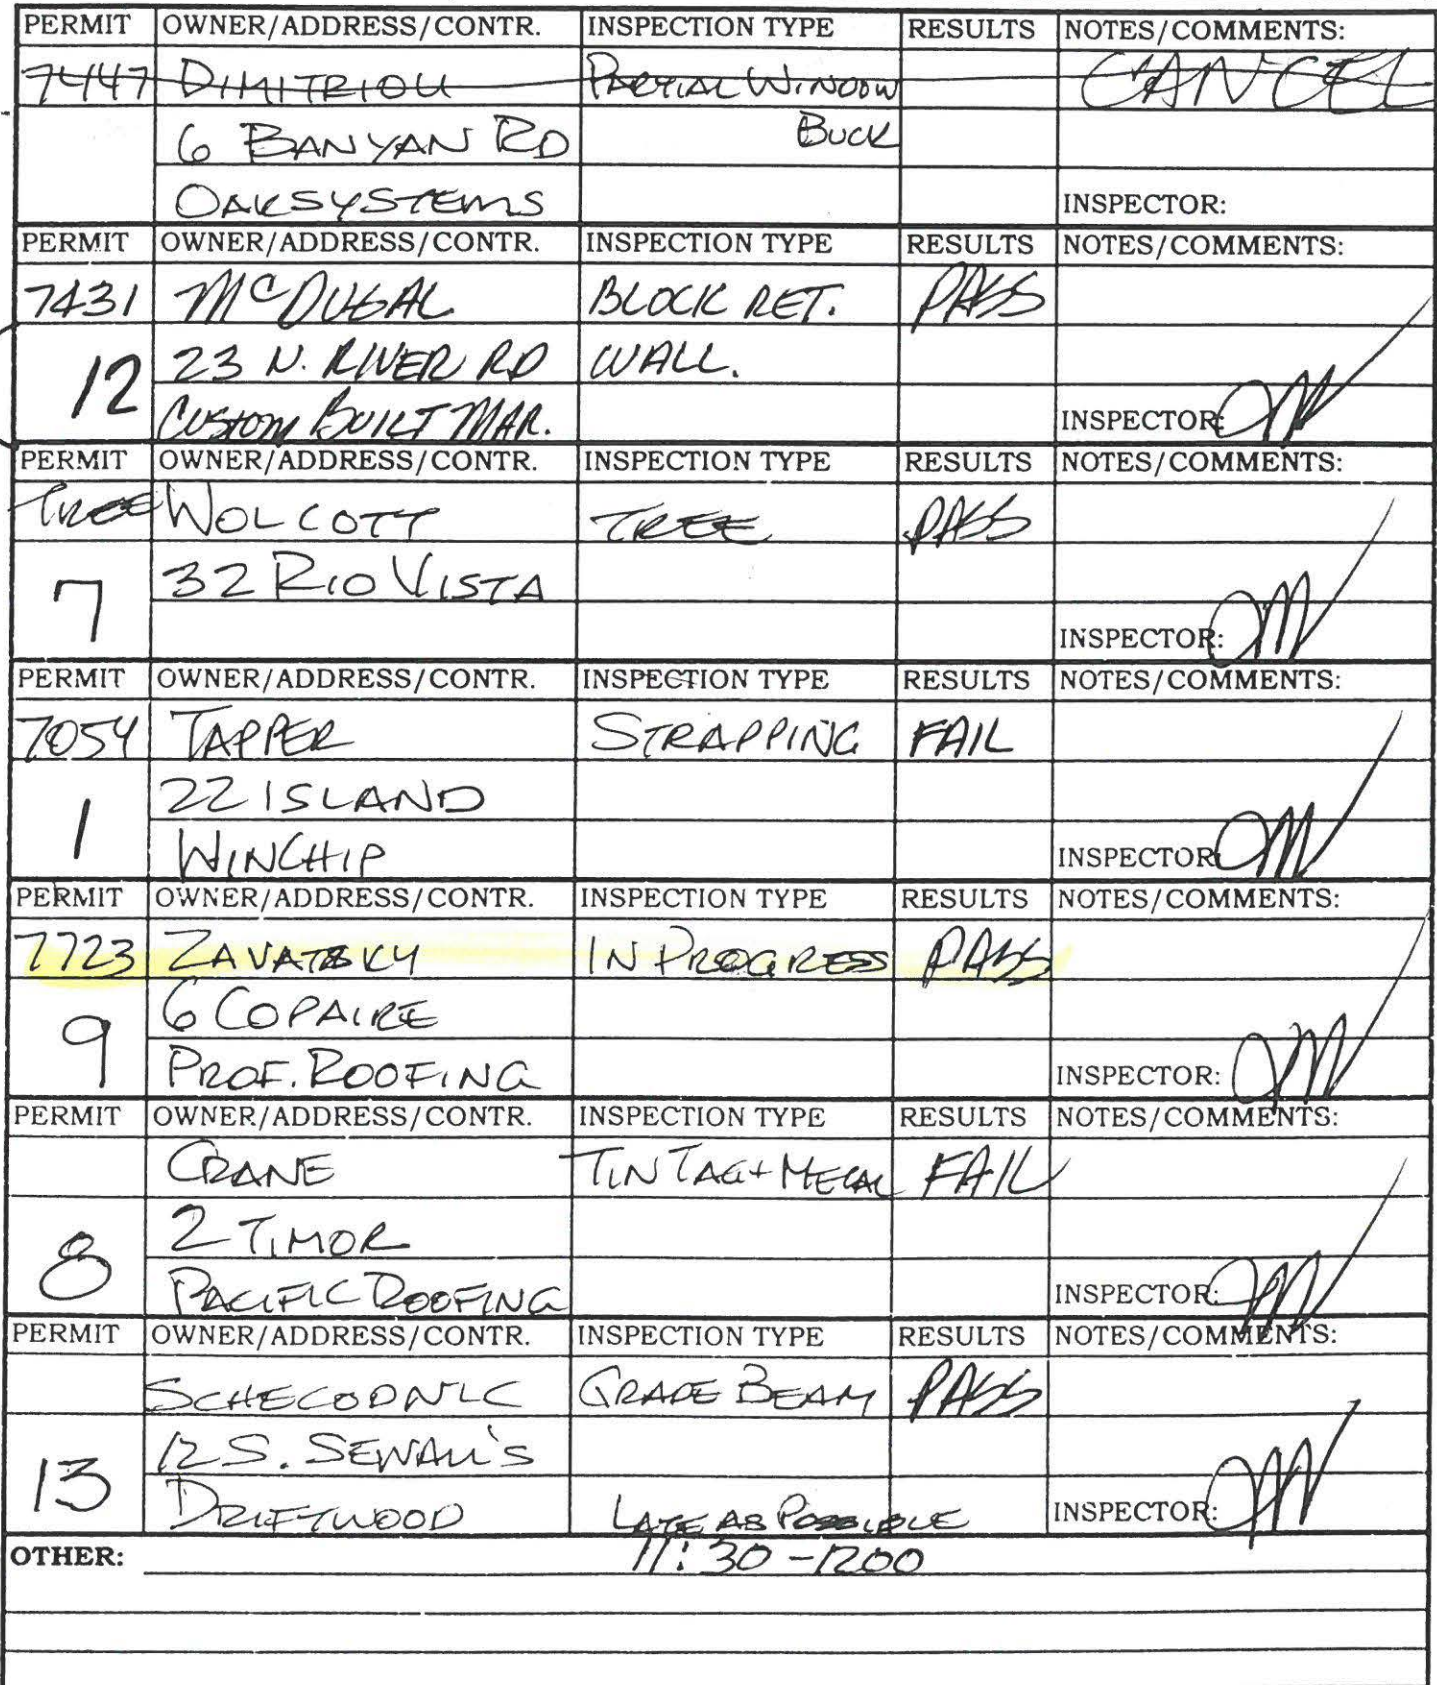 PERMIT OWNER/ADDRESS/CONTR. INSPECTION TYPE RESULTS NOTES/COMMENTS:
7447 DIMITRIOU PARTIAL WINDOW CANCEL
6 BANYAN RD BUCK
OAKSYSTEMS INSPECTOR:
PERMIT OWNER/ADDRESS/CONTR. INSPECTION TYPE RESULTS NOTES/COMMENTS:
7431 McDUGAL BLOCK RET. PASS
12 23 N. RIVER RD WALL.
CUSTOM BUILT MAR. INSPECTOR:
PERMIT OWNER/ADDRESS/CONTR. INSPECTION TYPE RESULTS NOTES/COMMENTS:
TREE WOLCOTT TREE PASS
7 32 RIO VISTA
INSPECTOR:
PERMIT OWNER/ADDRESS/CONTR. INSPECTION TYPE RESULTS NOTES/COMMENTS:
7054 TAPPER STRAPPING FAIL
1 22 ISLAND
WINCHIP INSPECTOR:
PERMIT OWNER/ADDRESS/CONTR. INSPECTION TYPE RESULTS NOTES/COMMENTS:
7723 ZAVATSKY IN PROGRESS PASS
9 6 COPAIRE
PROF. ROOFING INSPECTOR:
PERMIT OWNER/ADDRESS/CONTR. INSPECTION TYPE RESULTS NOTES/COMMENTS:
CRANE TIN TAG + METAL FAIL
8 2 TIMOR
PACIFIC ROOFING INSPECTOR:
PERMIT OWNER/ADDRESS/CONTR. INSPECTION TYPE RESULTS NOTES/COMMENTS:
GRADE BEAM PASS
13 12 S. SEWALL'S
DRIFTWOOD LATE AS POSSIBLE INSPECTOR:
OTHER: 11:30-1200